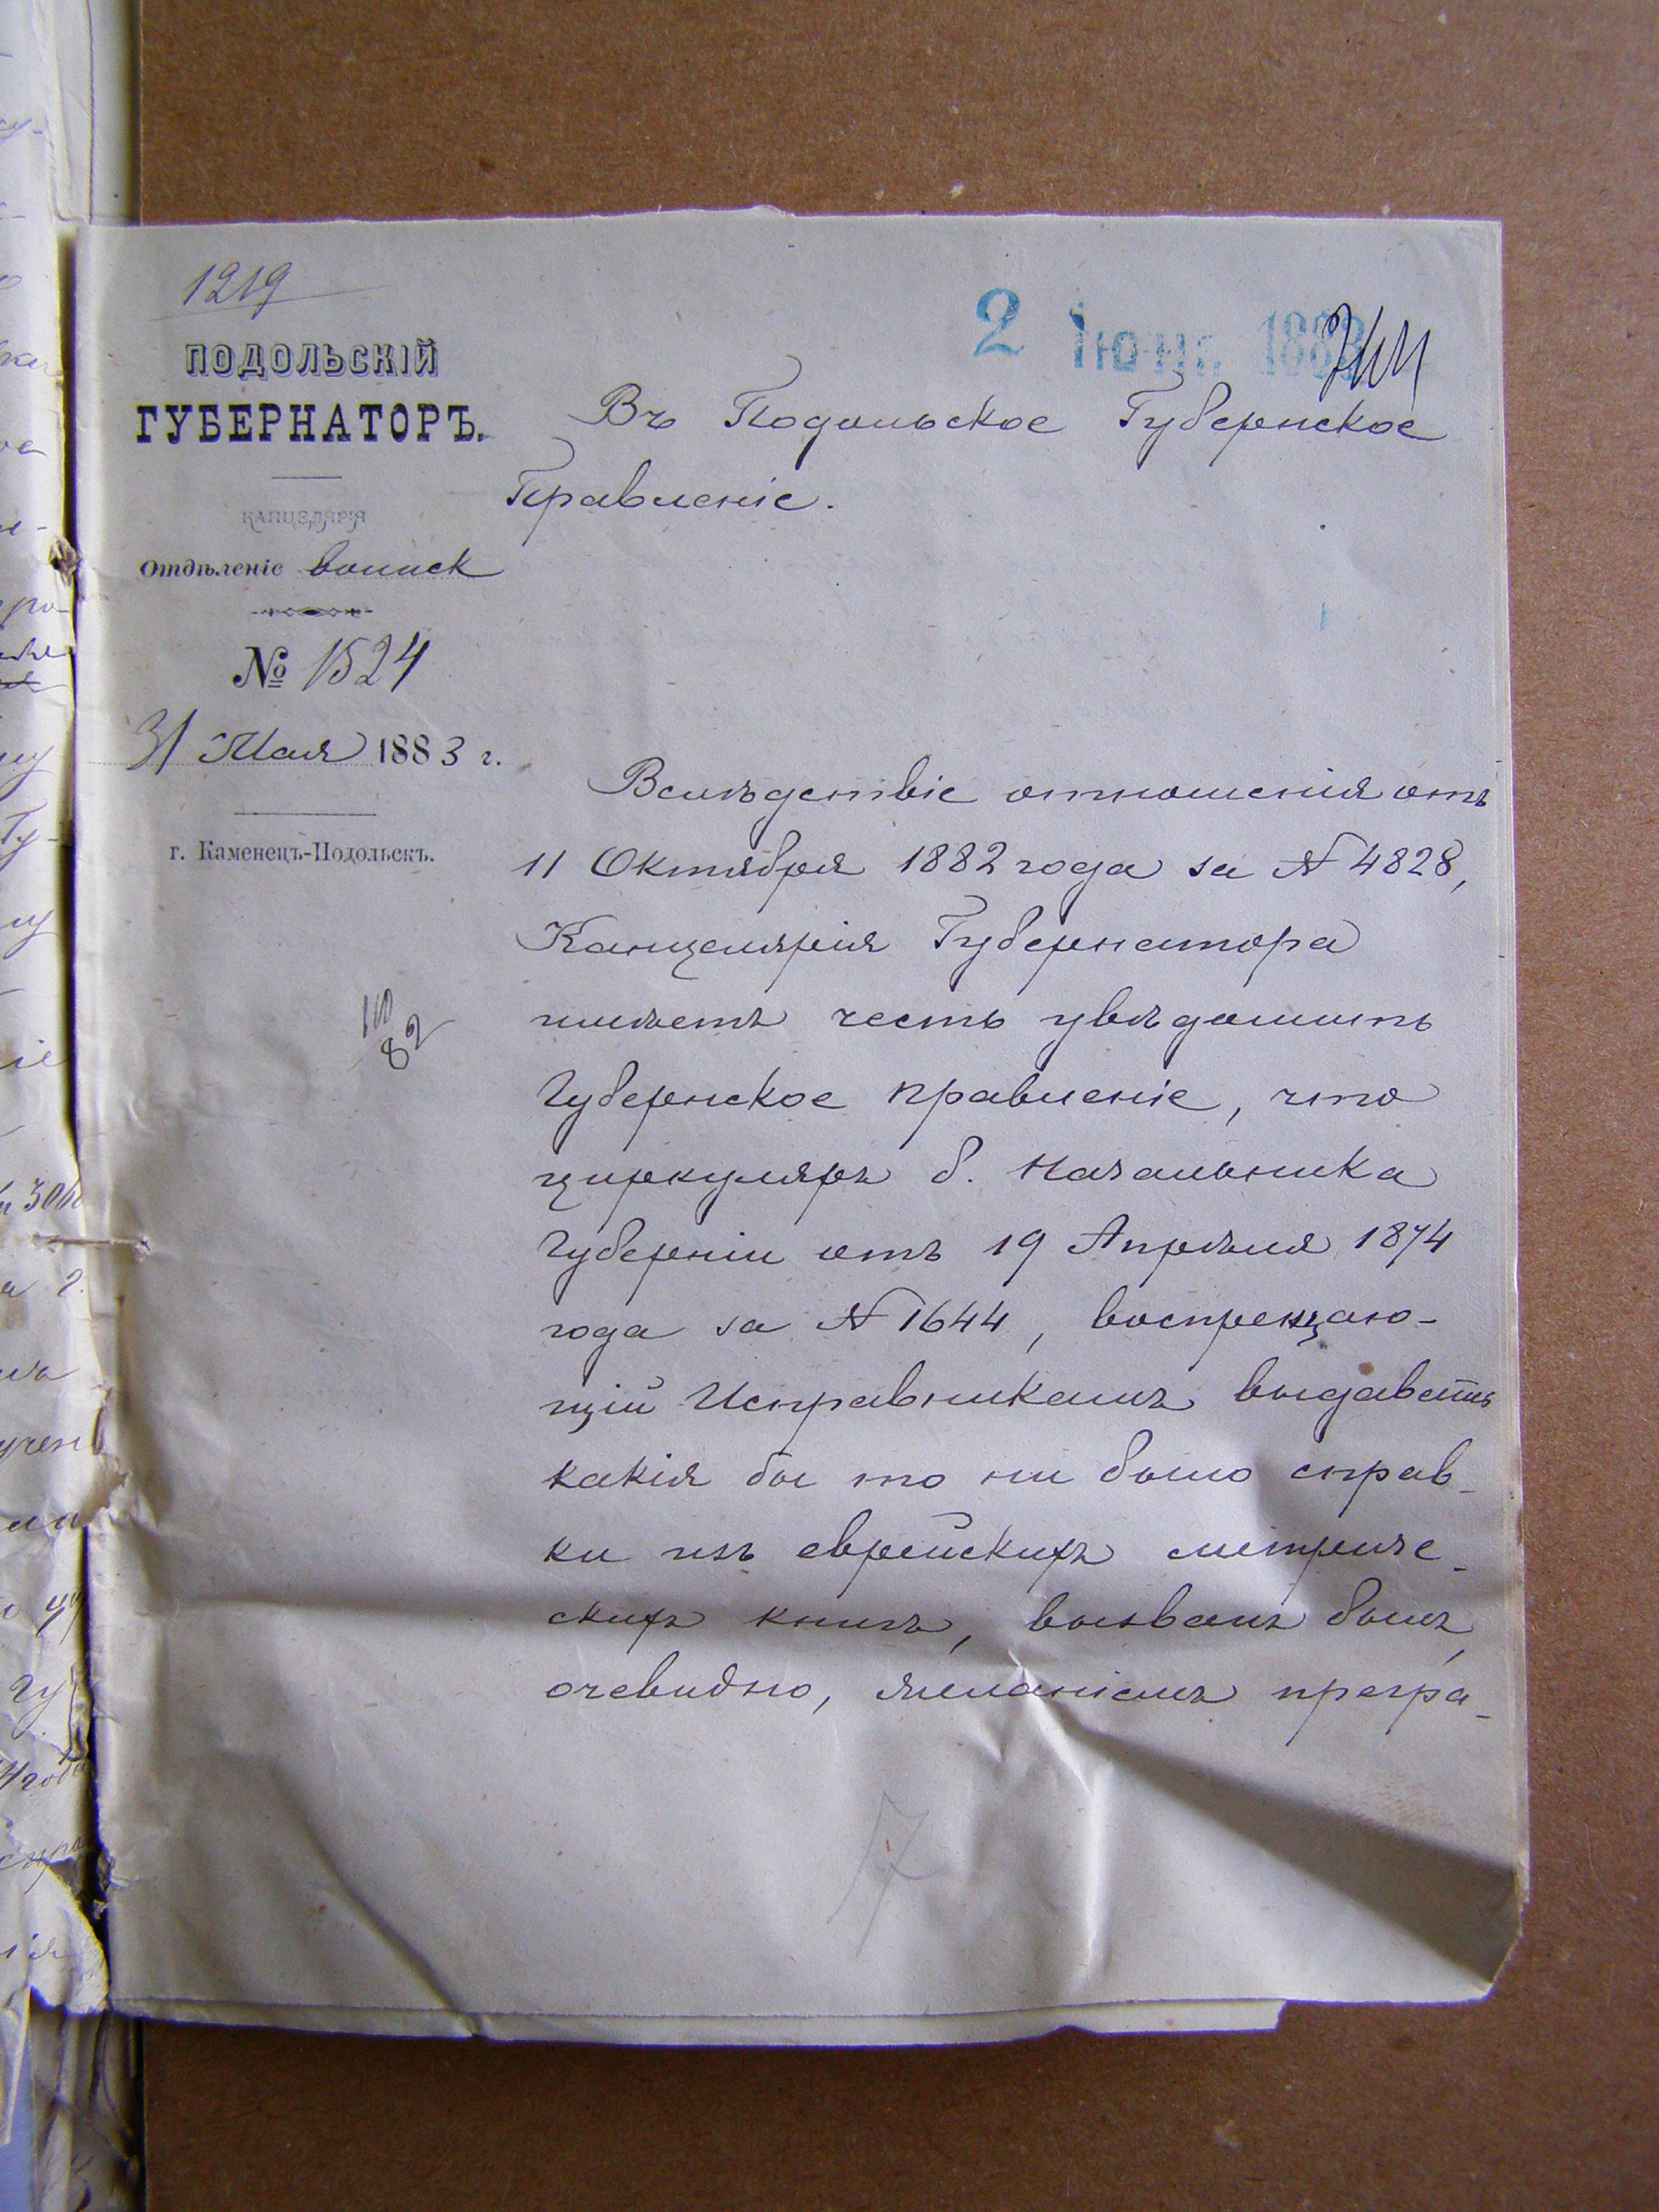 1219
2 Іюня 1883
ПОДОЛЬСКІЙ
ГУБЕРНАТОРЪ.
КАНЦЕЛЯРІЯ
Отдѣленіе воинск
№ 1524
31 Мая 1883 г.
г. Каменецъ-Подольскъ.
82
Въ Подольское Губернское
Правленіе.
Вслѣдствіе отношенія отъ
11 Октября 1882 года за № 4828,
Канцелярія Губернатора
имѣетъ честь увѣдомить
Губернское правленіе, что
циркуляръ б. Начальника
Губерніи отъ 19 Апрѣля 1874
года за № 1644, воспрещаю-
щій Исправникамъ выдавать
какія бы то ни было справ-
ки изъ еврейскихъ метриче-
скихъ книгъ, вызванъ былъ,
очевидно, желаніемъ прегра-
7